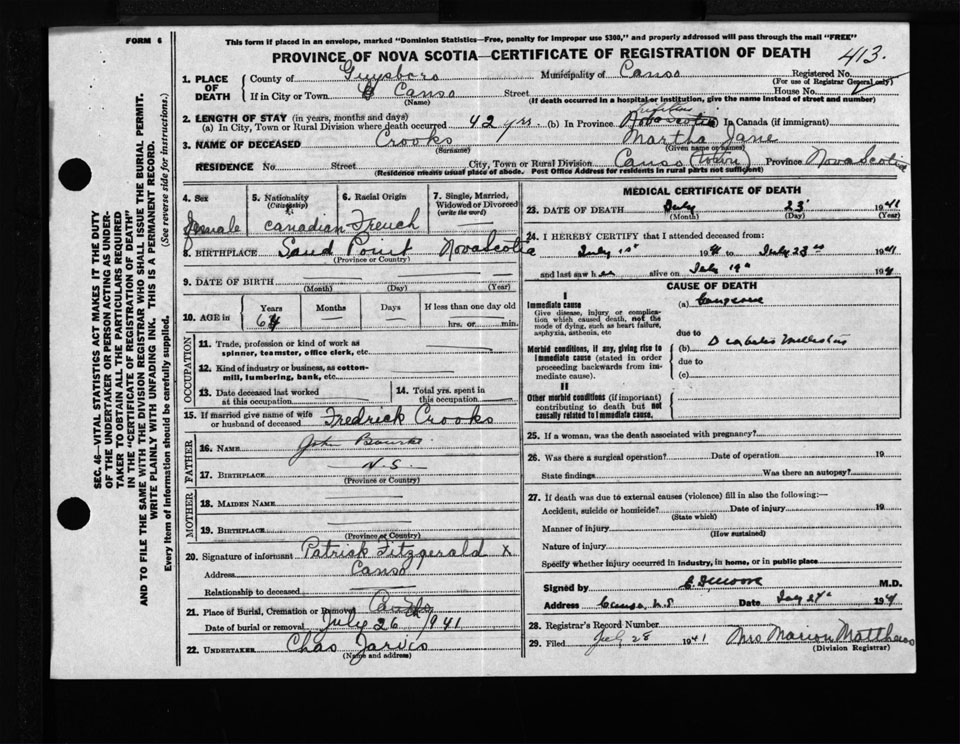 FORM 6
This form if placed in an envelope, marked "Dominion Statistics—Free, penalty for improper use $300," and properly addressed will pass through the mail "FREE"
PROVINCE OF NOVA SCOTIA—CERTIFICATE OF REGISTRATION OF DEATH
413.
1. PLACE OF DEATH
County of Guysboro Municipality of Canso Registered No.
(For use of Registrar General only)
If in City or Town Canso Street House No.
(Name) (If death occurred in a hospital or institution, give the name instead of street and number)
2. LENGTH OF STAY (in years, months and days)
(a) In City, Town or Rural Division where death occurred 42 yrs. (b) In Province lifetime Nova Scotia (c) In Canada (if immigrant)
3. NAME OF DECEASED Crooks Martha Jane
(Surname) (Given name or names)
RESIDENCE No. Street City, Town or Rural Division Canso (town) Province Nova Scotia
(Residence means usual place of abode. Post Office Address for residents in rural parts not sufficient)
4. Sex
Female
5. Nationality
(Citizenship)
Canadian
6. Racial Origin
French
7. Single, Married, Widowed or Divorced
(write the word)
8. BIRTHPLACE Sand Point Nova Scotia
(Province or Country)
9. DATE OF BIRTH
(Month) (Day) (Year)
10. AGE in
Years Months Days If less than one day old
64 hrs. or min.
OCCUPATION
11. Trade, profession or kind of work as spinner, teamster, office clerk, etc.
12. Kind of industry or business, as cotton-mill, lumbering, bank, etc.
13. Date deceased last worked at this occupation
14. Total yrs. spent in this occupation
15. If married give name of wife or husband of deceased Fredrick Crooks
FATHER
16. NAME John Bourke
17. BIRTHPLACE N.S.
(Province or Country)
MOTHER
18. MAIDEN NAME
19. BIRTHPLACE
(Province or Country)
20. Signature of informant Patrick Fitzgerald X
Address Canso
Relationship to deceased
21. Place of Burial, Cremation or Removal Canso
Date of burial or removal July 26 1941
22. UNDERTAKER Chas Jarvis
(Name and address)
MEDICAL CERTIFICATE OF DEATH
23. DATE OF DEATH July 23 1941
(Month) (Day) (Year)
24. I HEREBY CERTIFY that I attended deceased from:
July 1941 to July 23rd 1941
and last saw her alive on July 19th 1941
CAUSE OF DEATH
I
Immediate cause
Give disease, injury or complication which caused death, not the mode of dying, such as heart failure, asphyxia, asthenia, etc
(a) Gangrene
due to
Morbid conditions, if any, giving rise to immediate cause (stated in order proceeding backwards from immediate cause).
(b) Diabetes Mellitus
due to
(c)
II
Other morbid conditions (if important) contributing to death but not causally related to immediate cause.
25. If a woman, was the death associated with pregnancy?
26. Was there a surgical operation? Date of operation 19
State findings Was there an autopsy?
27. If death was due to external causes (violence) fill in also the following:—
Accident, suicide or homicide? Date of injury 19
(State which)
Manner of injury
(How sustained)
Nature of injury
Specify whether injury occurred in industry, in home, or in public place
Signed by M.D.
Address Canso, N.S. Date July 1941
28. Registrar's Record Number
29. Filed July 28 1941 Mrs Marion Matthews
(Division Registrar)
SEC. 46—VITAL STATISTICS ACT MAKES IT THE DUTY
OF THE UNDERTAKER OR PERSON ACTING AS UNDER-
TAKER TO OBTAIN ALL THE PARTICULARS REQUIRED
IN THE "CERTIFICATE OF REGISTRATION OF DEATH"
AND TO FILE THE SAME WITH THE DIVISION REGISTRAR WHO SHALL ISSUE THE BURIAL PERMIT.
WRITE PLAINLY WITH UNFADING INK. THIS IS A PERMANENT RECORD.
Every item of information should be carefully supplied. (See reverse side for instructions.)